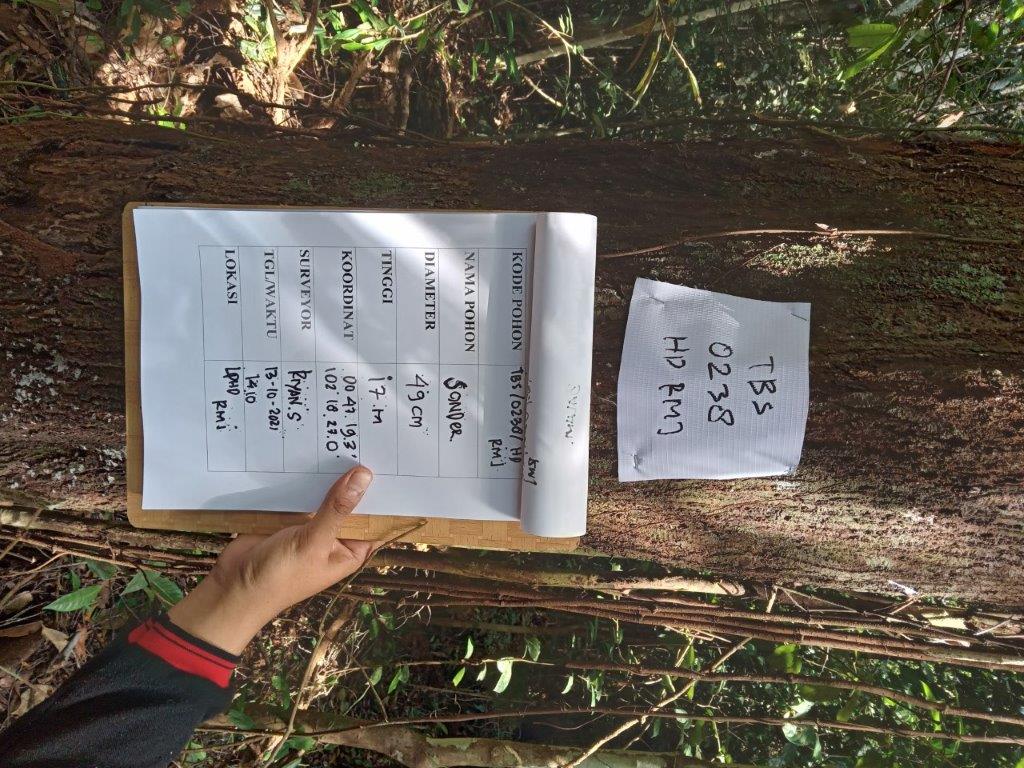 TBS
0238
HD RMJ
KODE POHON TBS/0238/ HD
RMJ
NAMA POHON SONDER
DIAMETER 49 CM
TINGGI 17 M
KOORDINAT 00 47. 19.3"
102° 18. 27.0"
SURVEYOR RIYAN.S
TGL/WAKTU 13-10-2021
14.10
LOKASI LPHD
RMJ